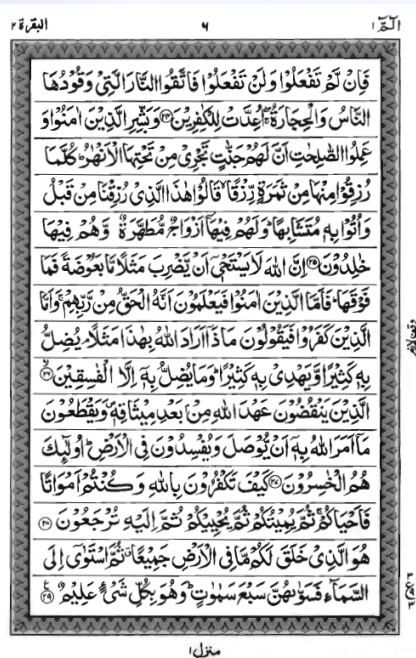 الٓمّٓ ١ ٦ البقرة ٢
فَاِنْ لَّمْ تَفْعَلُوْا وَلَنْ تَفْعَلُوْا فَاتَّقُوا النَّارَ الَّتِیْ وَقُوْدُهَا
النَّاسُ وَالْحِجَارَةُ ۖۚ اُعِدَّتْ لِلْكٰفِرِیْنَ ﴿۲۴﴾ وَبَشِّرِ الَّذِیْنَ اٰمَنُوْا وَ
عَمِلُوا الصّٰلِحٰتِ اَنَّ لَهُمْ جَنّٰتٍ تَجْرِیْ مِنْ تَحْتِهَا الْاَنْهٰرُ ؕ كُلَّمَا
رُزِقُوْا مِنْهَا مِنْ ثَمَرَةٍ رِّزْقًا ۙ قَالُوْا هٰذَا الَّذِیْ رُزِقْنَا مِنْ قَبْلُ ۙ
وَاُتُوْا بِهٖ مُتَشَابِهًا ؕ وَلَهُمْ فِیْهَاۤ اَزْوَاجٌ مُّطَهَّرَةٌ ۙ وَّهُمْ فِیْهَا
خٰلِدُوْنَ ﴿۲۵﴾ اِنَّ اللّٰهَ لَا یَسْتَحْیٖۤ اَنْ یَّضْرِبَ مَثَلًا مَّا بَعُوْضَةً فَمَا
فَوْقَهَا ؕ فَاَمَّا الَّذِیْنَ اٰمَنُوْا فَیَعْلَمُوْنَ اَنَّهُ الْحَقُّ مِنْ رَّبِّهِمْ ۚ وَاَمَّا
الَّذِیْنَ كَفَرُوْا فَیَقُوْلُوْنَ مَاذَاۤ اَرَادَ اللّٰهُ بِهٰذَا مَثَلًا ۘ یُضِلُّ
بِهٖ كَثِیْرًا ۙ وَّیَهْدِیْ بِهٖ كَثِیْرًا ؕ وَمَا یُضِلُّ بِهٖۤ اِلَّا الْفٰسِقِیْنَ ﴿۲۶﴾ۙ
الَّذِیْنَ یَنْقُضُوْنَ عَهْدَ اللّٰهِ مِنْۢ بَعْدِ مِیْثَاقِهٖ ۪ وَیَقْطَعُوْنَ
مَاۤ اَمَرَ اللّٰهُ بِهٖۤ اَنْ یُّوْصَلَ وَیُفْسِدُوْنَ فِی الْاَرْضِ ؕ اُولٰٓئِكَ
هُمُ الْخٰسِرُوْنَ ﴿۲۷﴾ كَیْفَ تَكْفُرُوْنَ بِاللّٰهِ وَكُنْتُمْ اَمْوَاتًا
فَاَحْیَاكُمْ ۚ ثُمَّ یُمِیْتُكُمْ ثُمَّ یُحْیِیْكُمْ ثُمَّ اِلَیْهِ تُرْجَعُوْنَ ﴿۲۸﴾
هُوَ الَّذِیْ خَلَقَ لَكُمْ مَّا فِی الْاَرْضِ جَمِیْعًا ۗ ثُمَّ اسْتَوٰۤی اِلَی
السَّمَآءِ فَسَوّٰىهُنَّ سَبْعَ سَمٰوٰتٍ ؕ وَهُوَ بِكُلِّ شَیْءٍ عَلِیْمٌ ﴿۲۹﴾
منزل ۱